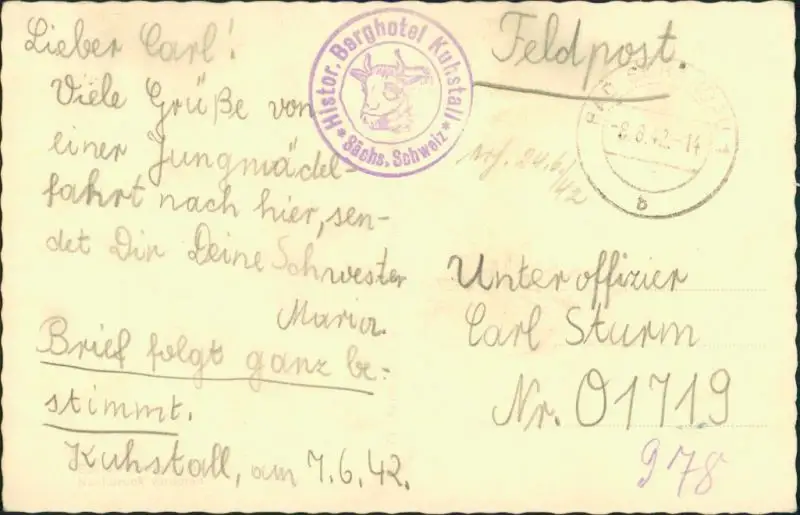 Lieber Carl!
Viele Grüße von
einer Jungmädel-
fahrt nach hier, sen-
det Dir Deine Schwester
Maria.
Brief folgt ganz be-
stimmt.
Kuhstall, am 7.6.42.
Histor. Berghotel Kuhstall
* Sächs. Schweiz *
Feldpost.
24.6.
42
-8.6.42.-14
b
Unteroffizier
Carl Sturm
Nr. 01719
978